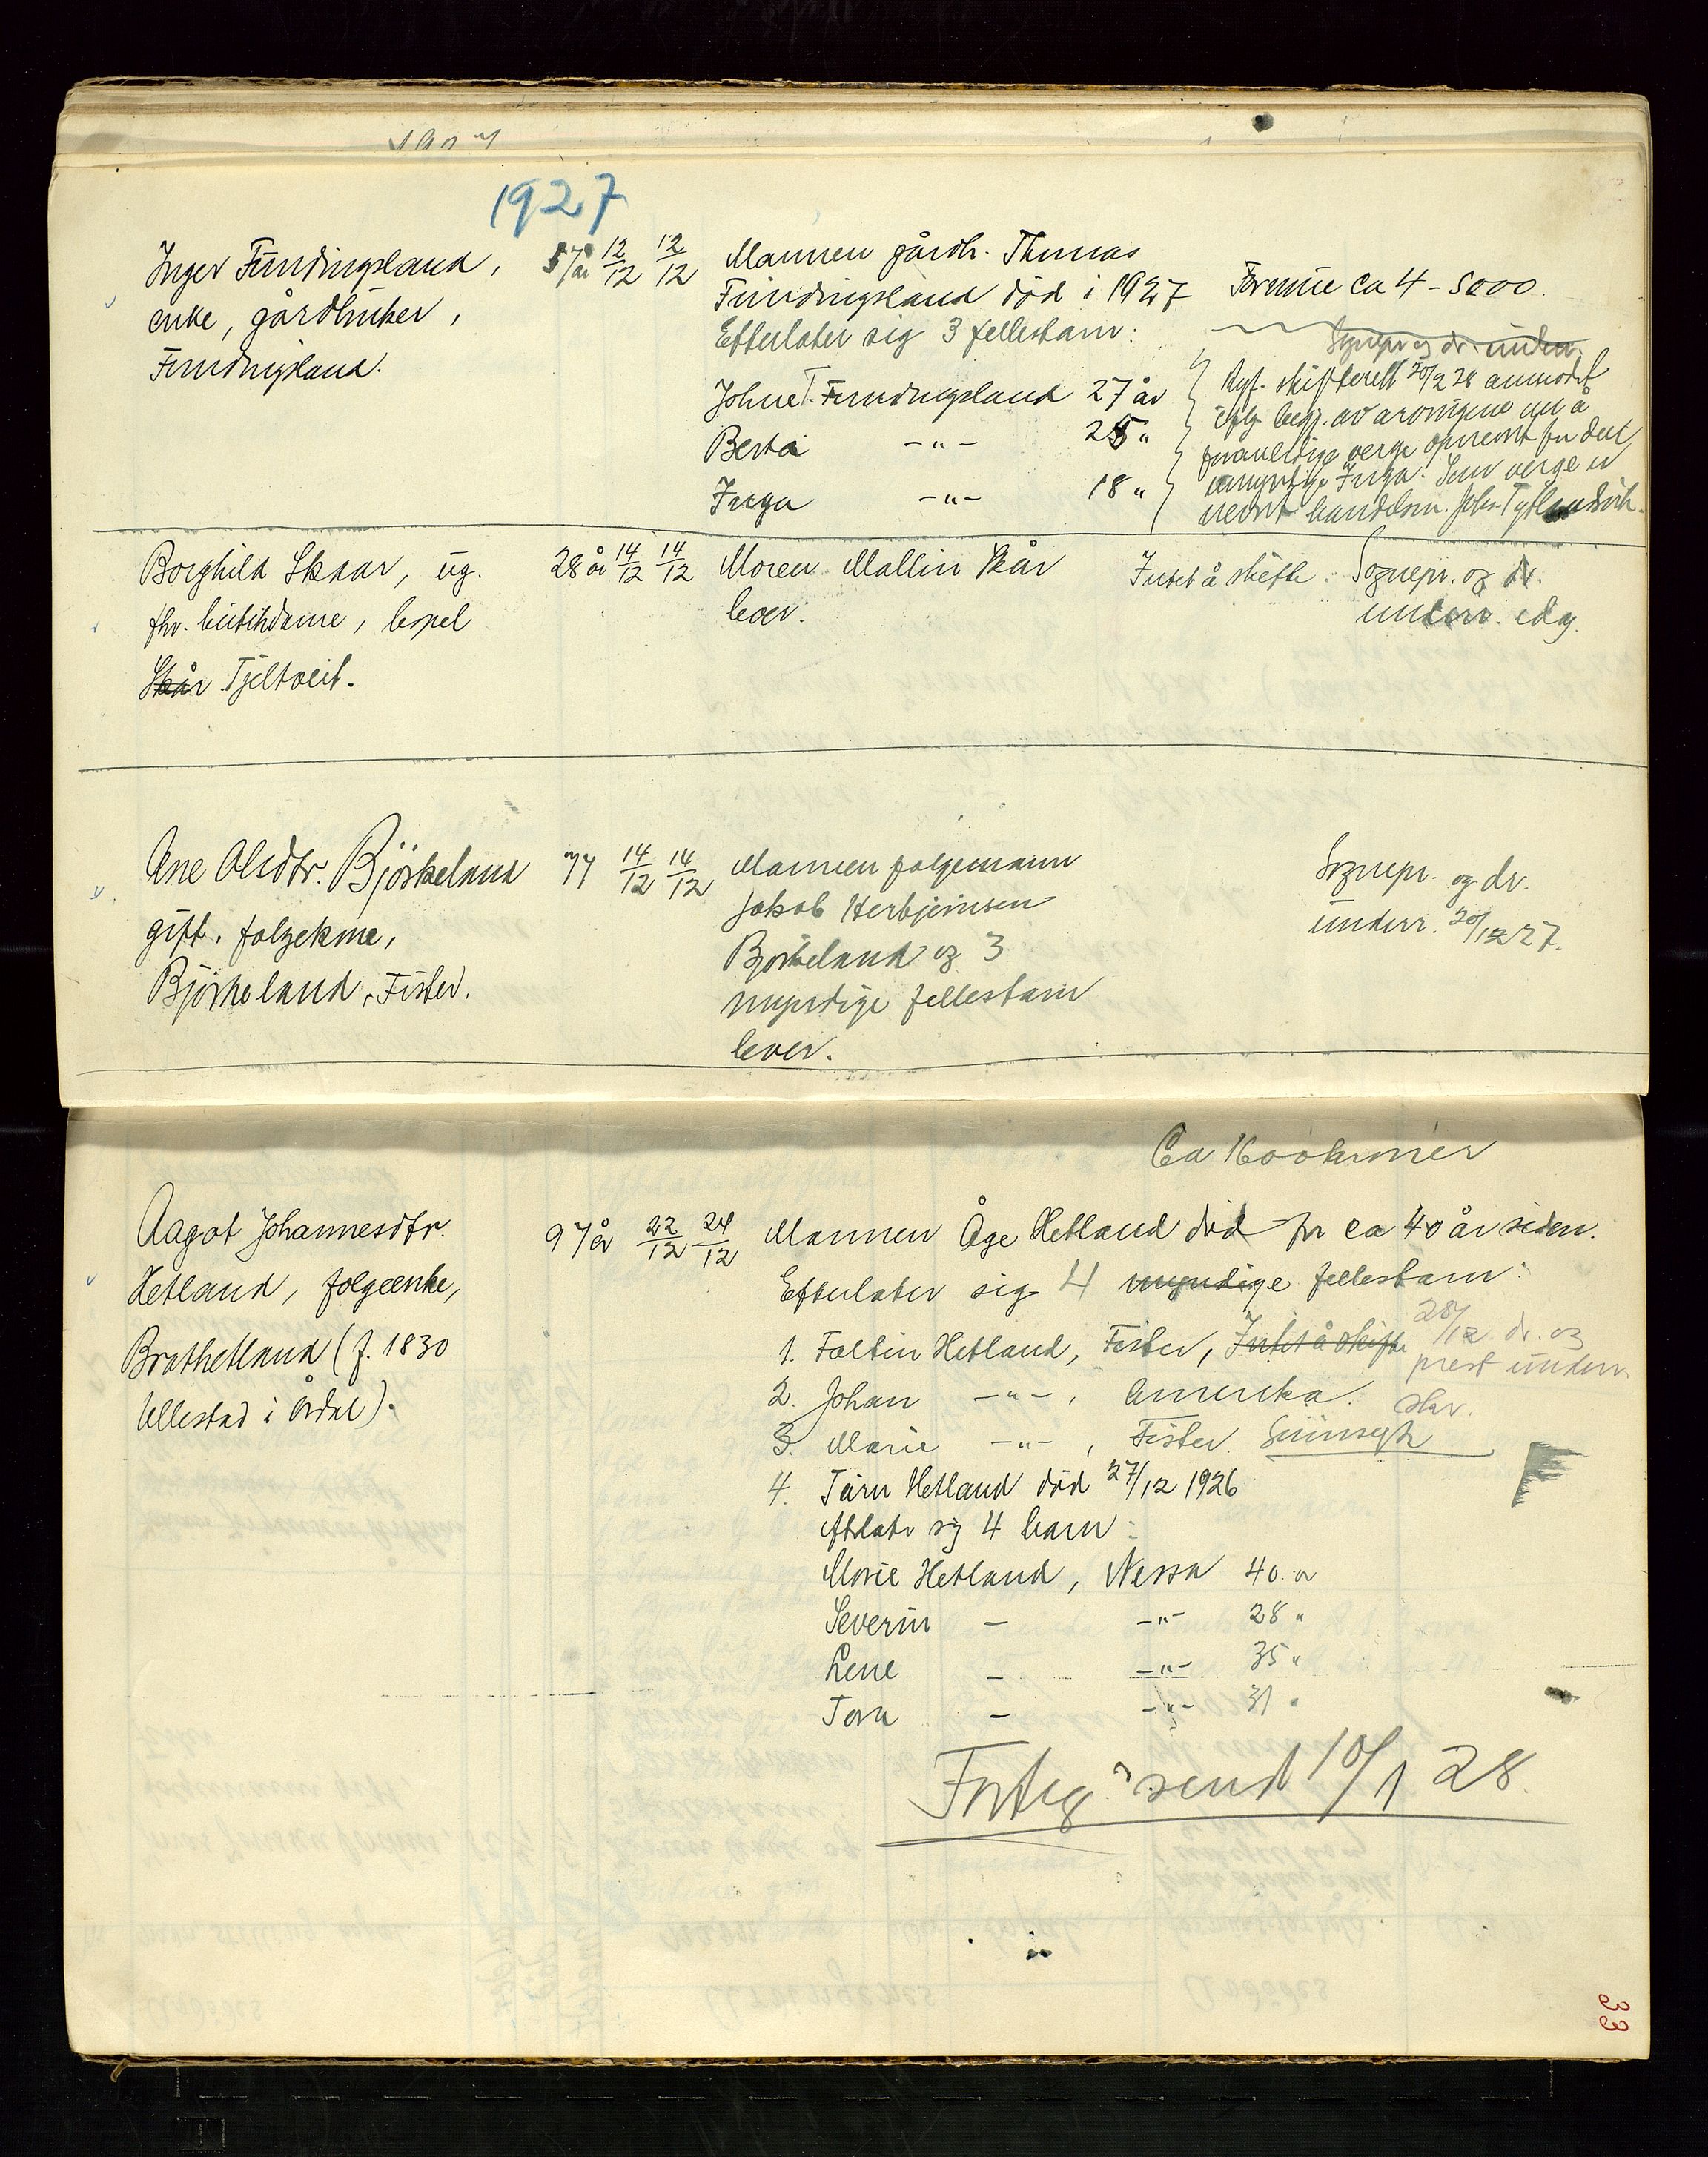 1927
Inger Fundingsland,
enke, gårdbruker,
Fundingsland.
57 år 12/12 12/12
Mannen gårdb. Thomas
Fundingsland död i 1927
Efterlater sig 3 fellesbarn:
Johne T. Fundingsland 27 år
Berta -"- 25 "
Inga -"- 18 "
Formue ca 4-5000.
Sognepr og dr. underr.
Ryf. skifterett 20/2 28 anmodet
efter begj. av arvingene om å
foranledige verge opnevnt for den
umyndige Inga. Som verge er
nevnt handelsm.
Borghild Skaar, ug.
fhv. butikdame, bopel
Skår Tjeltveit.
28 år 14/12 14/12
Moren Mallin Skår
lever.
Intet å skifte. Sognepr. og dr.
underr. idag.
Ane Olsdtr. Björkeland
gift, folgekone,
Björkeland, Fister.
77 14/12 14/12
Mannen folgemann
Jakob Herbjörnsen
Björkeland og 3
myndige fellesbarn
lever.
Sognepr. og dr.
underr. 20/12 27.
Ca 1600 kroner
Aagot Johannesdtr.
Hetland, folgeenke,
Brathetland (f. 1830
Ullestad i Årdal).
97 år 22/12 24/12
Mannen Åge Hetland död for ca 40 år siden.
Efterlater sig 4 myndige fellesbarn:
1. Faltin Hetland, Fister, Intet å skifte
28/12 dr. og
prest underr.
2. Johan -"-, Amerika.
skr.
3. Marie -"-, Fister.
4. Tårn Hetland död 27/12 1926
efterlater sig 4 barn:
Marie Hetland, Nessa 40 år
Severin - -"- 28 "
Lene - -"- 35 "
Tora - -"- 31 "
Forteg. sendt 10/1 28.
33